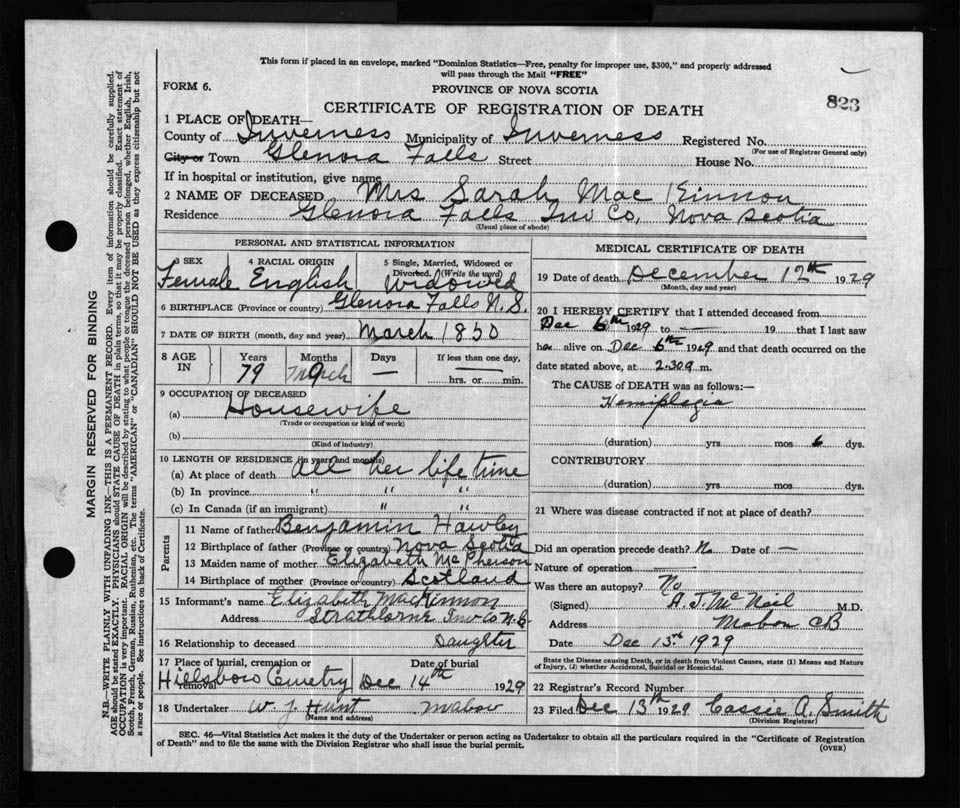 This form if placed in an envelope, marked "Dominion Statistics—Free, penalty for improper use, $300," and properly addressed
will pass through the Mail "FREE"
FORM 6.
PROVINCE OF NOVA SCOTIA
823
CERTIFICATE OF REGISTRATION OF DEATH
1 PLACE OF DEATH—
County of Inverness Municipality of Inverness Registered No.
(For use of Registrar General only)
City or Town Glenora Falls Street House No.
If in hospital or institution, give name
2 NAME OF DECEASED Mrs Sarah Mac Kinnon
Residence Glenora Falls Inv Co, Nova Scotia
(Usual place of abode)
PERSONAL AND STATISTICAL INFORMATION
3 SEX 4 RACIAL ORIGIN 5 Single, Married, Widowed or
Divorced. (Write the word)
Female English Widowed
6 BIRTHPLACE (Province or country) Glenora Falls N.S.
7 DATE OF BIRTH (month, day and year) March 1850
8 AGE IN Years Months Days If less than one day,
79 March 9 — hrs. or min.
9 OCCUPATION OF DECEASED
(a) Housewife
(Trade or occupation or kind of work)
(b)
(Kind of industry)
10 LENGTH OF RESIDENCE (in years and months)
(a) At place of death all her life time
(b) In province " " "
(c) In Canada (if an immigrant) " "
Parents
11 Name of father Benjamin Hawley
12 Birthplace of father (Province or country) Nova Scotia
13 Maiden name of mother Elizabeth McPherson
14 Birthplace of mother (Province or country) Scotland
15 Informant's name Elizabeth MacKinnon
Address Strathlorne Inv Co N.S.
16 Relationship to deceased Daughter
17 Place of burial, cremation or removal Date of burial
Hillsboro Cemetry Dec 14th 1929
18 Undertaker W. J. Hunt Mabou
(Name and address)
MEDICAL CERTIFICATE OF DEATH
19 Date of death December 12th 1929
(Month, day and year)
20 I HEREBY CERTIFY that I attended deceased from
Dec 6th 1929 to — 19 that I last saw
her alive on Dec 6th 1929 and that death occurred on the
date stated above, at 2.30 a m.
The CAUSE of DEATH was as follows:—
Hemiplegia
(duration) yrs mos 6 dys.
CONTRIBUTORY
(duration) yrs mos dys.
21 Where was disease contracted if not at place of death?
Did an operation precede death? No Date of —
Nature of operation —
Was there an autopsy? No
(Signed) A. J. McNeil M.D.
Address Mabou CB
Date Dec 13th 1929
State the Disease causing Death, or in death from Violent Causes, state (1) Means and Nature
of Injury, (2) whether Accidental, Suicidal or Homicidal.
22 Registrar's Record Number
23 Filed Dec 13th 1929 Cassie A. Smith
(Division Registrar)
SEC. 46—Vital Statistics Act makes it the duty of the Undertaker or person acting as Undertaker to obtain all the particulars required in the "Certificate of Registration
of Death" and to file the same with the Division Registrar who shall issue the burial permit.
(OVER)
MARGIN RESERVED FOR BINDING
N.B.—WRITE PLAINLY WITH UNFADING INK—THIS IS A PERMANENT RECORD. Every item of information should be carefully supplied.
AGE should be stated EXACTLY. PHYSICIANS should STATE CAUSE OF DEATH in plain terms, so that it may be properly classified. Exact statement of
OCCUPATION is very important. RACIAL ORIGIN will be described by stating to what people or tongue the deceased person belonged, whether English, Irish,
Scotch, French, German, Russian, Ruthenian, etc. The terms "AMERICAN" or "CANADIAN" SHOULD NOT BE USED as they express citizenship but not
a race or people. See instructions on back of Certificate.